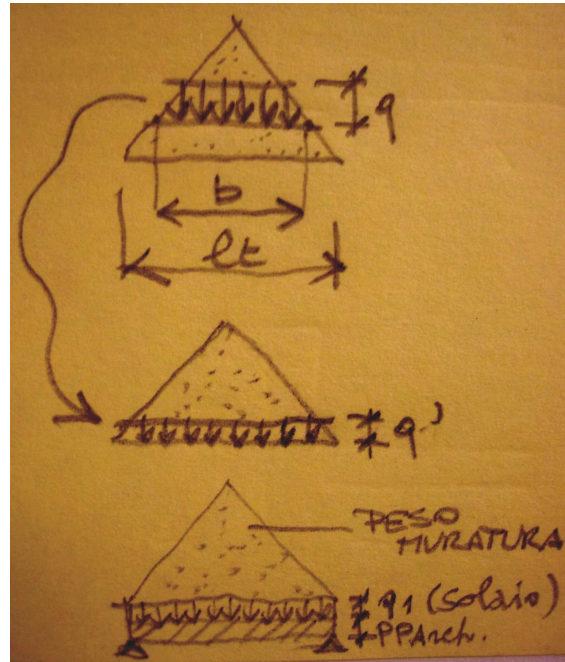 q
b
lt
q'
PESO
MURATURA
q1 (Solaio)
PPArch.